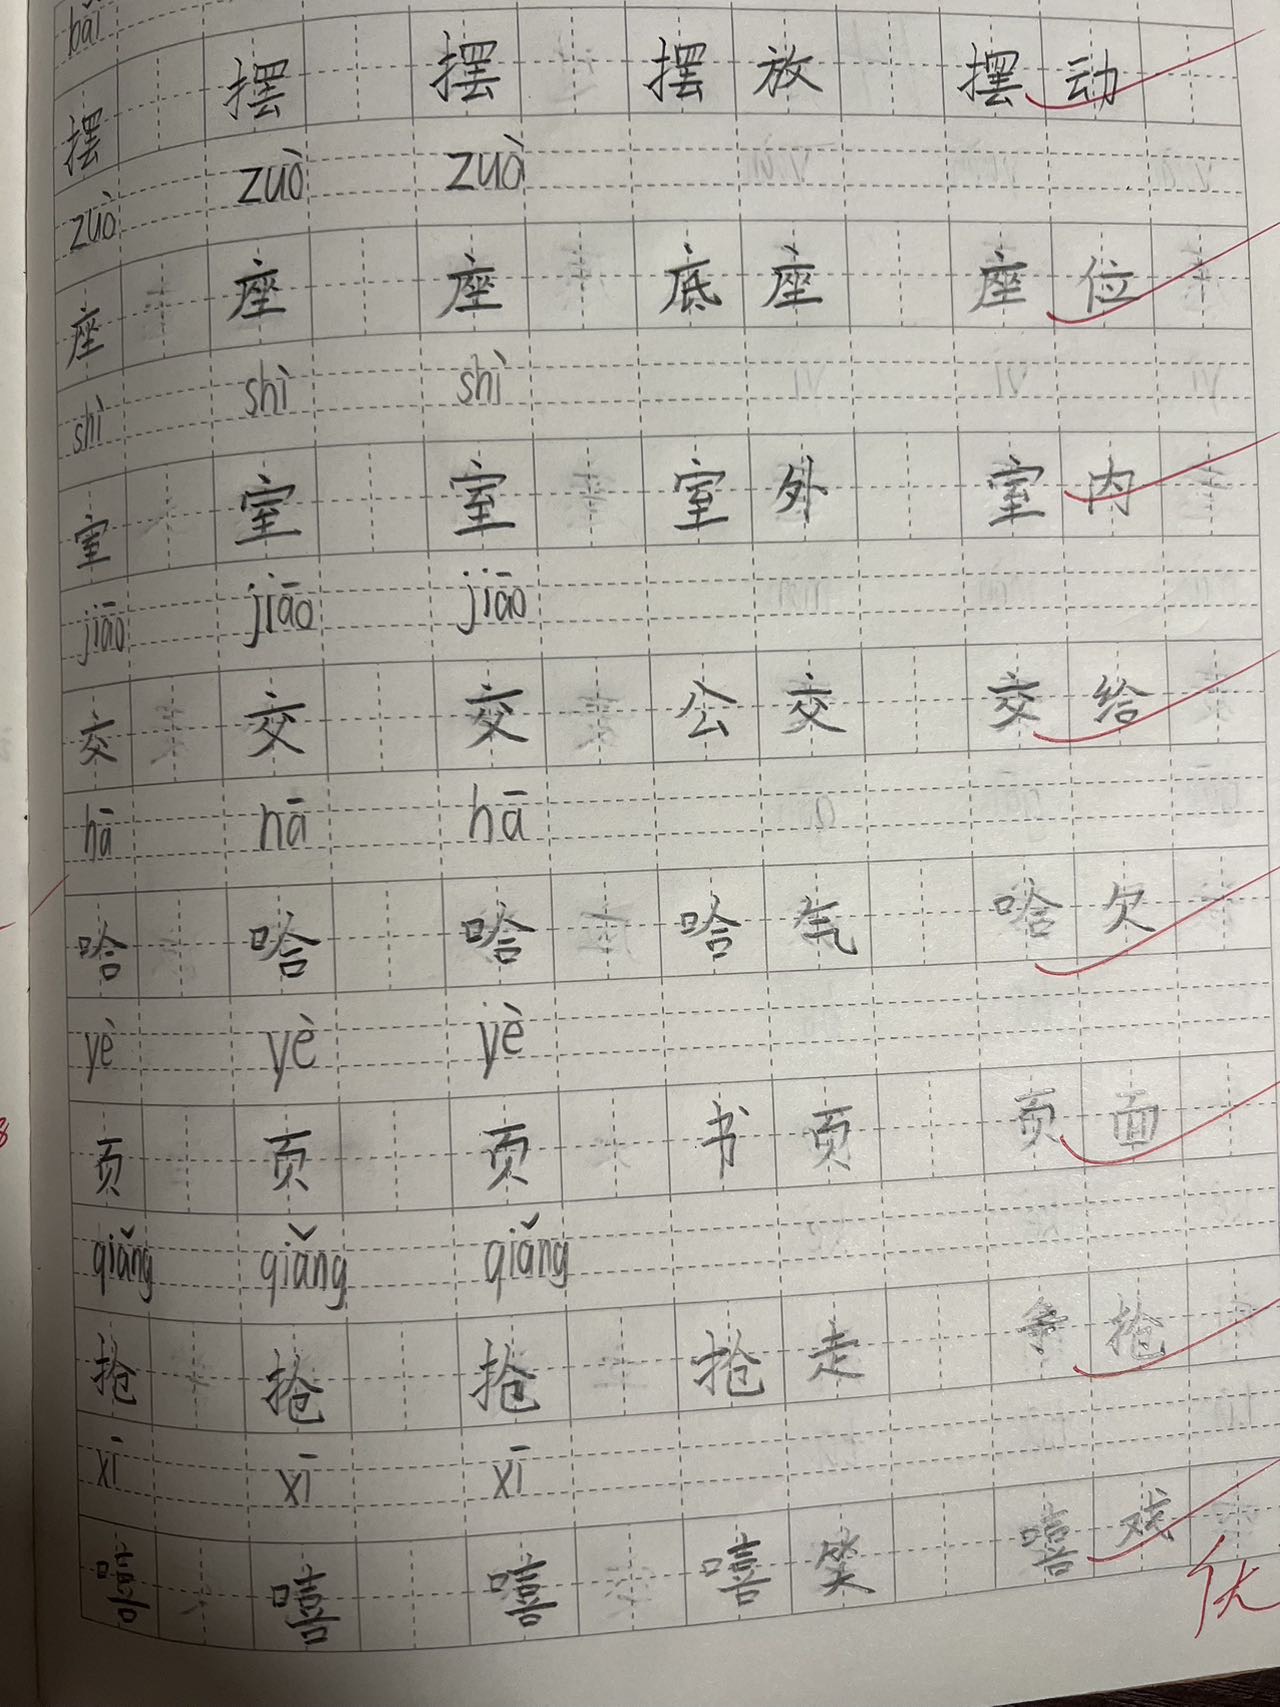 bǎi
摆 摆 摆 摆放 摆动
zuò zuò zuò
座 座 座 底座 座位
shì shì shì
室 室 室 室外 室内
jiāo jiāo jiāo
交 交 交 公交 交给
hā hā hā
哈 哈 哈 哈气 哈欠
yè yè yè
页 页 页 书页 页面
qiǎng qiǎng qiǎng
抢 抢 抢 抢走 争抢
xī xī xī
嘻 嘻 嘻 嘻笑 嘻戏
优